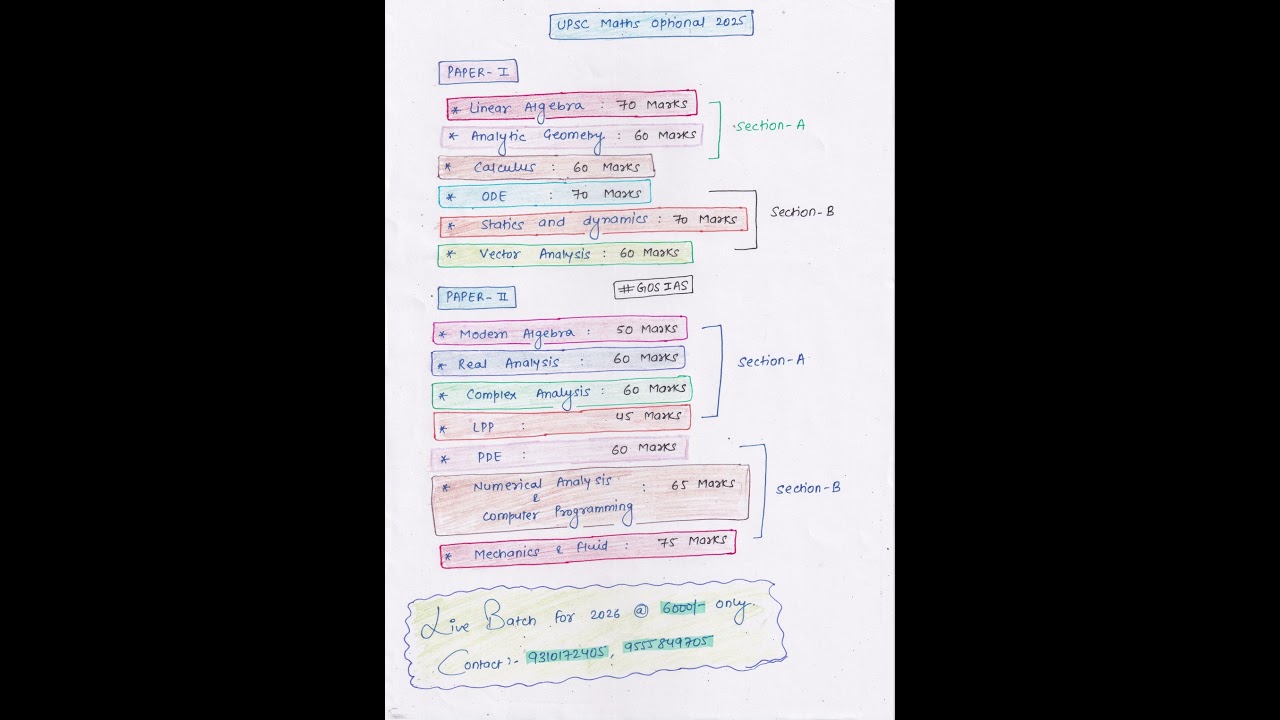 UPSC Maths Optional 2025
PAPER- I
* Linear Algebra : 70 Marks
* Analytic Geometry : 60 Marks
Section-A
* Calculus : 60 Marks
* ODE : 70 Marks
Section-B
* Statics and dynamics : 70 Marks
* Vector Analysis : 60 Marks
PAPER- II
#GOSIAS
* Modern Algebra : 50 Marks
* Real Analysis : 60 Marks
Section-A
* Complex Analysis : 60 Marks
* LPP : 45 Marks
* PDE : 60 Marks
* Numerical Analysis : 65 Marks
&
Computer Programming
Section-B
* Mechanics & Fluid : 75 Marks
Live Batch for 2026 @ 6000/- only.
Contact :- 9310172405, 9555849705